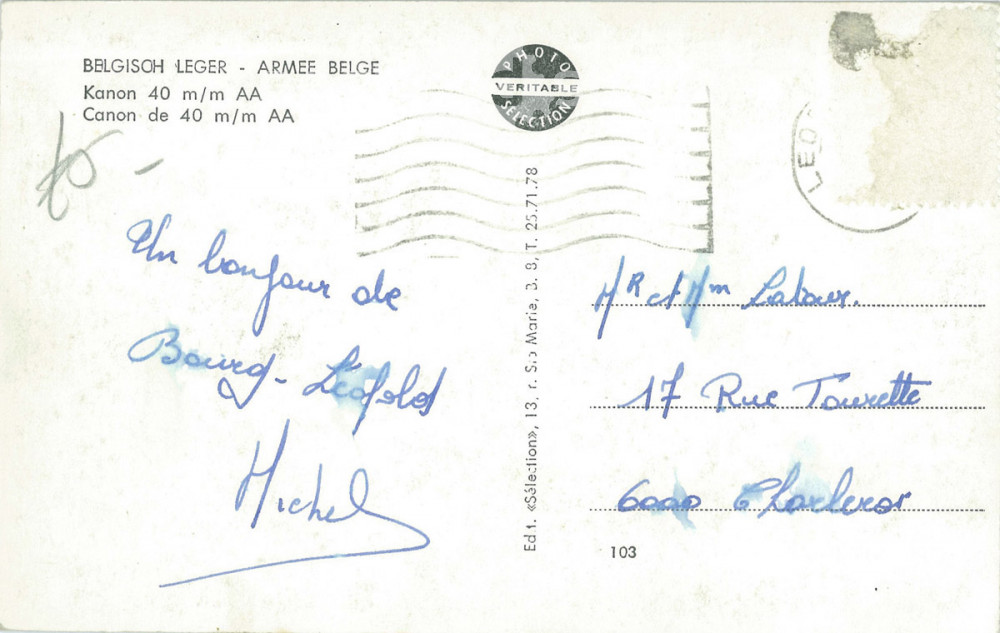 BELGISCH LEGER - ARMEE BELGE
Kanon 40 m/m AA
Canon de 40 m/m AA
PHOTO
VERITABLE
SELECTION
LEO
Un bonjour de
Bourg-Léopold
Michel
Ed t. «Sélection», 13, r. S.o Marie, 3. 8, T. 25.71.78
Mr et Mm Latour.
17 Rue Tourette
6000 Charleroi
103